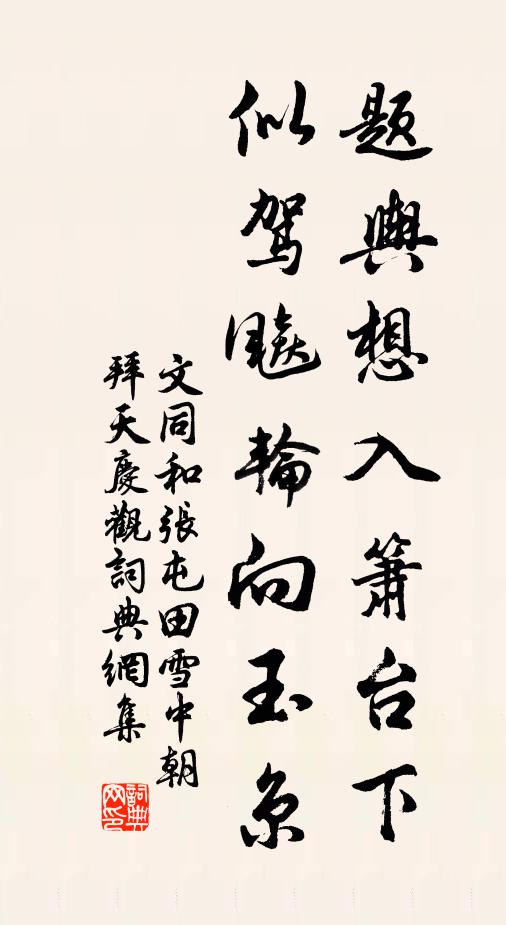 題輿想入簫台下
似駕飈輪向玉京
文同和張屯田雪中朝
拜天慶觀詞典網集
詞典
网印